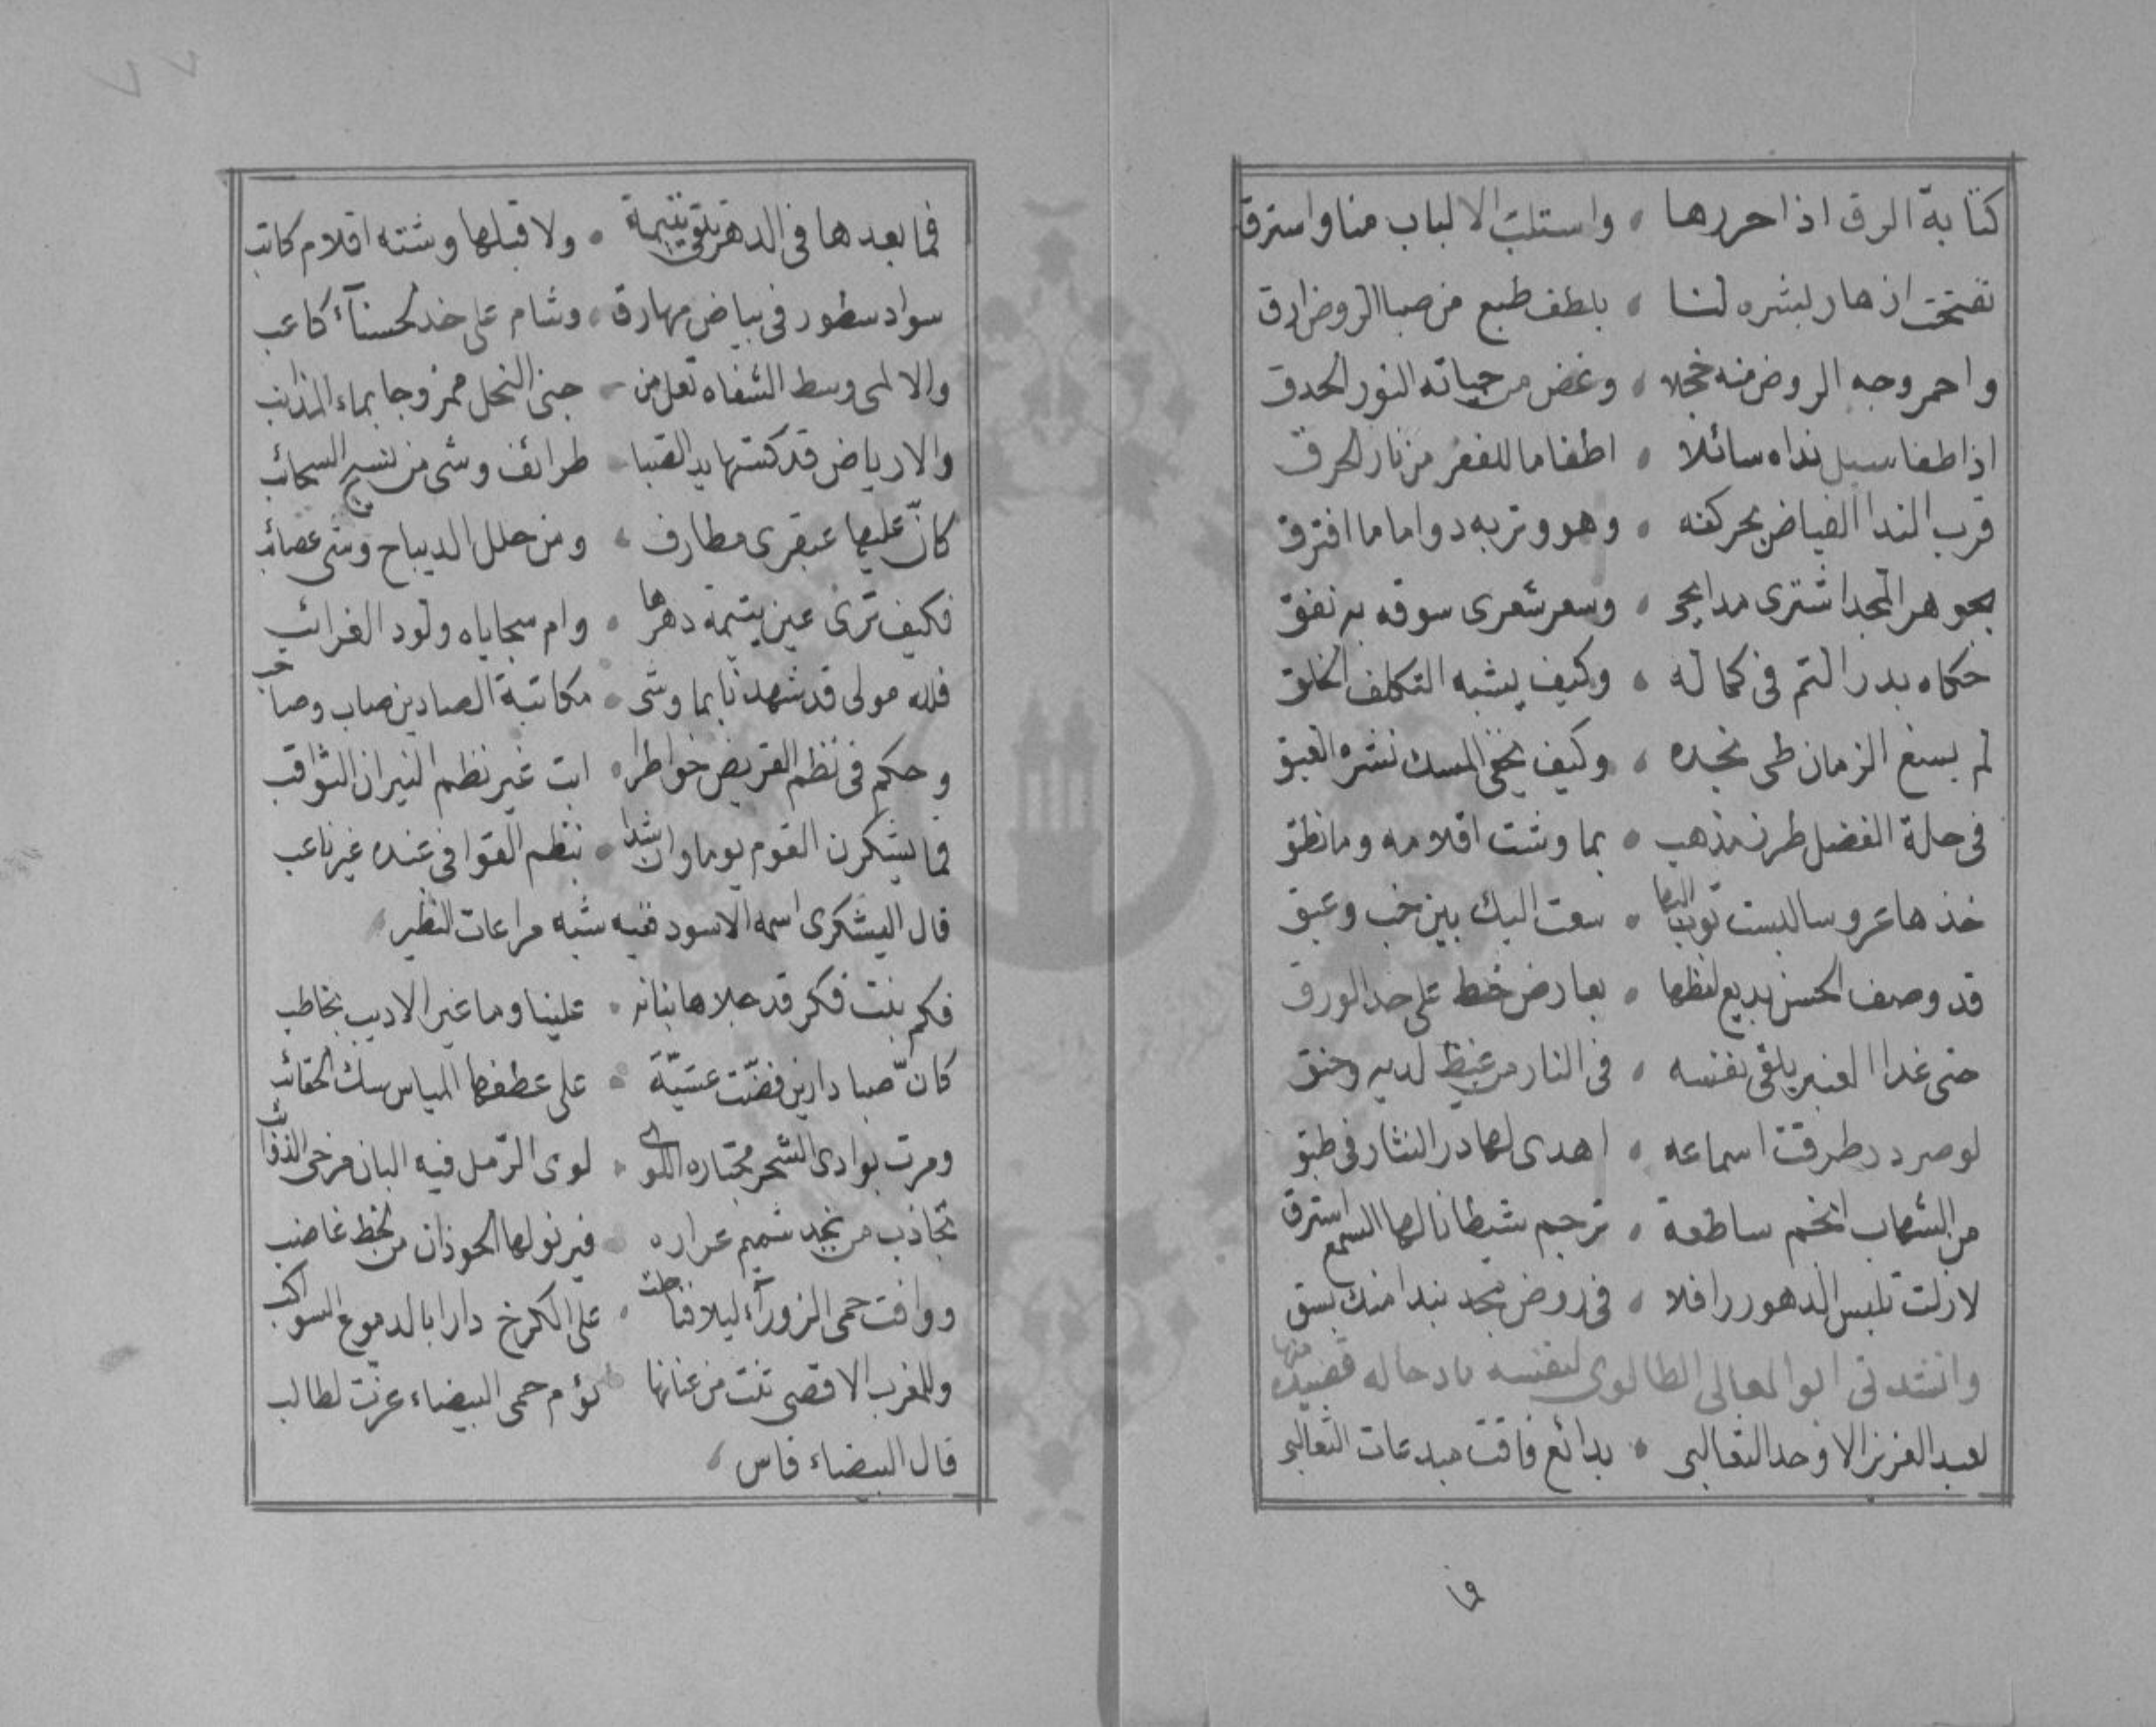 كتابة الرق اذا حررها ، واستلبت الالباب منا واسترق
تفتحت ازهار لبشره لنا ، بلطف طبع من صبا الروض ارق
واحمر وجه الروض منه خجلا ، وغض من حياته النور الحدق
اذا طفا سيل نداه سائلا ، اطفا ما للفقر من نار الحرق
قرب الندا الفياض بحر كفه ، وهو وتربه دواما ما افترق
بجوهر المجد اشترى مدايحي ، وسعر شعرى سوقه به نفق
حكاه بدر التم فى كماله ، وكيف يشبه التكلف الخلق
لم يسع الزمان طى مجده ، وكيف يخفى المسك نشره العبق
فى حلة الفضل طرز مذهب ، بما وشت اقلامه وما نطق
خذها عروسا لبست ثوب البها ، سعت اليك بين خب وعبق
قد وصف الحسن بديع لفظها ، بعارض خط على خد الورق
حتى غدا العنبر يلقى نفسه ، فى النار من غيظ لديه وحنق
لو صردر طرقت اسماعه ، اهدى لها در النثار فى طبق
من الشهاب انجم ساطعة ، ترجم شيطانا لها السمع استرق
لا زلت تلبس الدهور رافلا ، فى روض مجد بندا منك بسق
وانشدنى ابو المعالى الطالوى لنفسه مادحا له قصيدة منها
لعبد العزيز الاوحد الثعالبى ، بدائع فاقت مبدعات الثعالبى
فما
فما بعدها فى الدهر تلقى يتيمة ، ولا قبلها وشته اقلام كاتب
سواد سطور فى بياض مهارق ، وشام على خد لحسنآء كاعب
والا لمى وسط الشفاه تعل من ، جنى النحل ممزوجا بماء المذانب
والا رياض قد كستها يد الصبا ، طرائف وشى من نسيج السحائب
كانّ عليها عبقرى مطارف ، ومن حلل الديباج وشى عصائب
فكيف ترى عين يتيمة دهرها ، وام سجاياه ولود الغرائب
فلله مولى قد شهدنا بما وشى ، مكاتبة الصادين صاب وصاحب
وحكم فى نظم القريض خواطرا ، ابت غير نظم النيران الثواقب
فما يشكرن القوم يوما وان شدا ، بنظم القوا فى عنده غير ناعب
قال اليشكرى اسمه الاسود ففيه شبه مراعات النظير ،
فكم بنت فكر قد جلاها بنانه ، علينا وما غير الاديب بخاطب
كانّ صبا دارين فضّت عشيّة ، على عطفها المياس مسك الحقائب
ومرت بوادى الشحر مجتازه اللوى ، لوى الرمل فيه البان مرخى الذوائب
تجاذب من نجد شميم عراره ، فيرنو لها الحوذان من لحظ غاضب
ووافت حمى الزورآء ليلا فناطت ، على الكرخ دارا بالدموع السواكب
وللمغرب الاقصى ثنت من عنانها ، تؤم حمى البيضاء عزت لطالب
قال البيضاء فاس ،